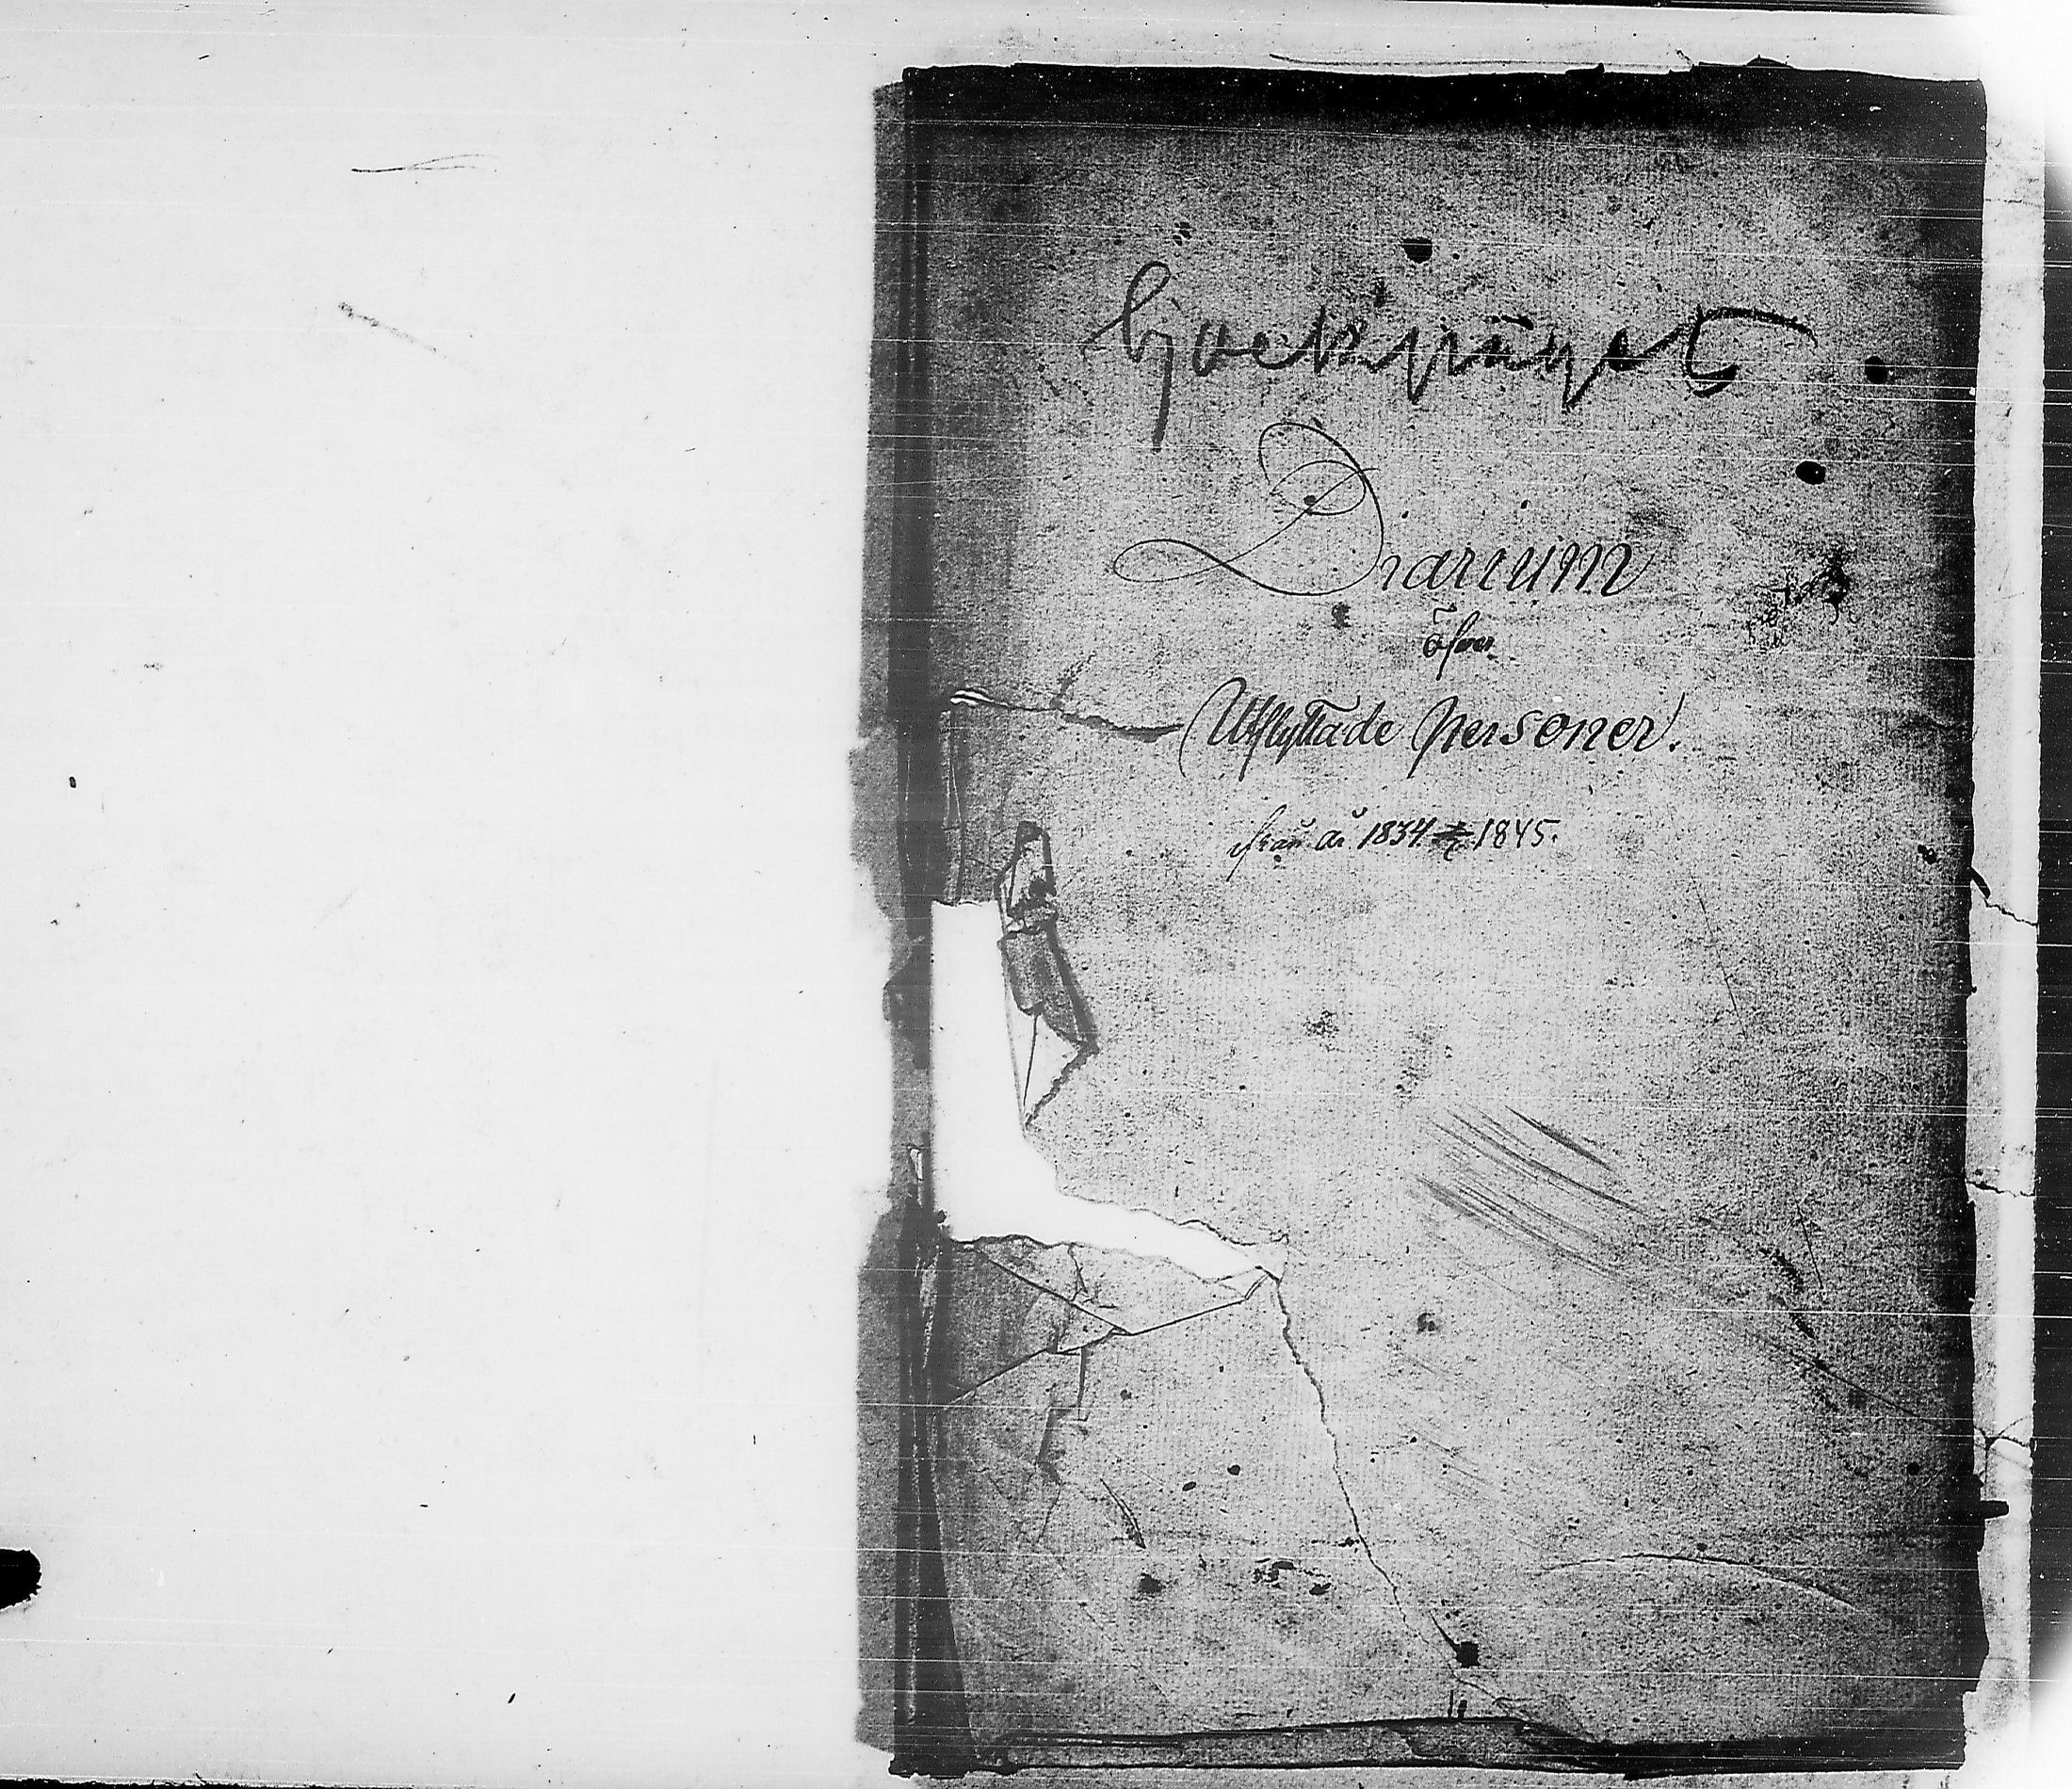 Diarium
öfver
Utflyttade personer.
ifrån år 1834 1845.